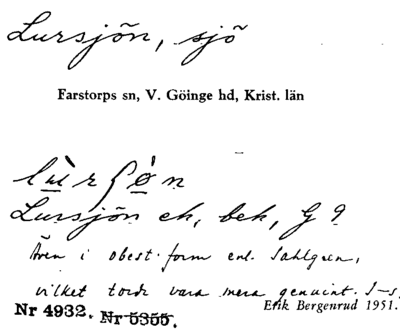 Lursjön, sjö
Farstorps sn, V. Göinge hd, Krist. län
lùrʃø̀n
Lursjön ek, bek, G 9
Även i obest. form enl. Sahlgren,
vilket torde vara mera genuint. I-s,
Erik Bergenrud 1951.
Nr 4932. Nr 5355.